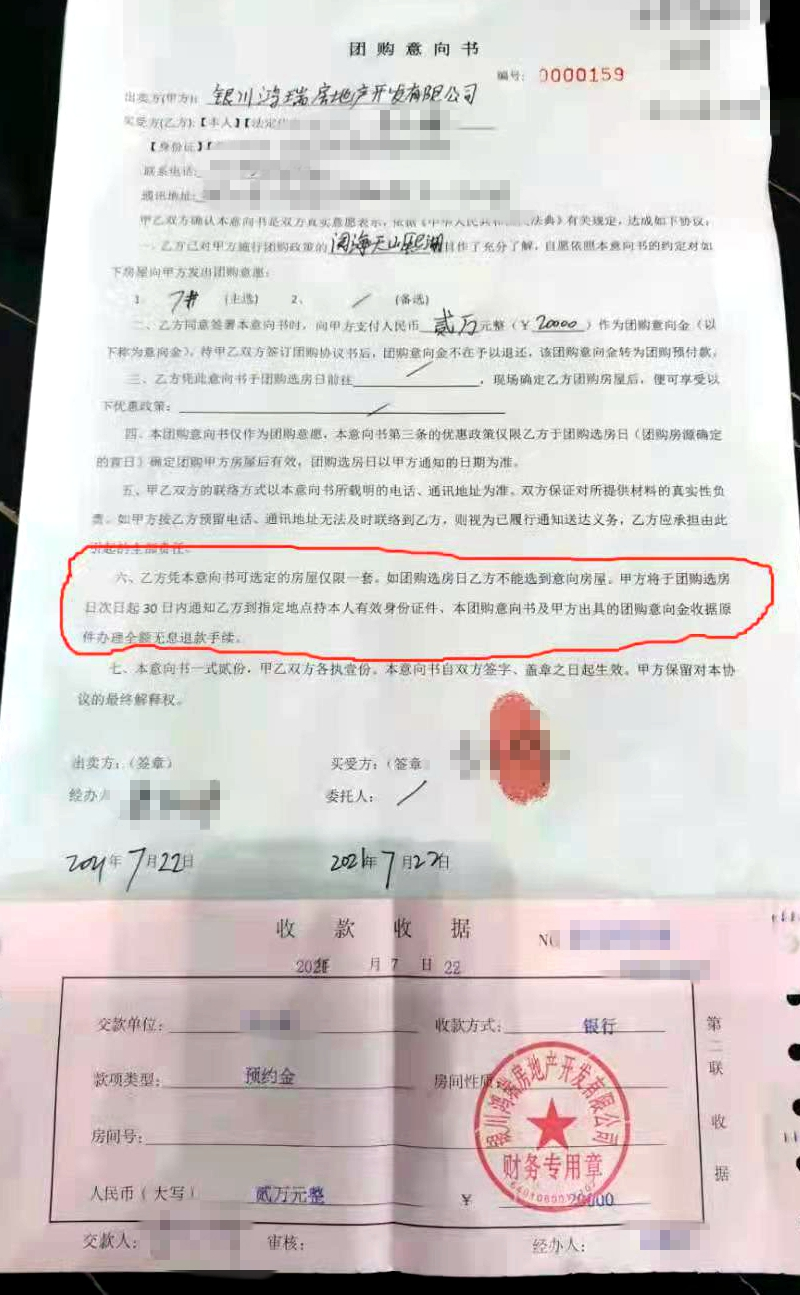 团购意向书
编号: 0000159
出卖方(甲方): 银川鸿瑞房地产开发有限公司
买受方(乙方):【本人】【法定代
【身份证】【
联系电话:
通讯地址:
甲乙双方确认本意向书是双方真实意愿表示，依据《中华人民共和国民法典》有关规定，达成如下协议，
一、乙方已对甲方施行团购政策的阅海天山熙湖项目作了充分了解，自愿依照本意向书的约定对如
下房屋向甲方发出团购意愿:
1 7# (主选) 2、 / (备选)
二、乙方同意签署本意向书时，向甲方支付人民币 贰万元整（￥20000）作为团购意向金（以
下称为意向金），待甲乙双方签订团购协议书后，团购意向金不在予以退还，该团购意向金转为团购预付款。
三、乙方凭此意向书于团购选房日前往 / ，现场确定乙方团购房屋后，便可享受以
下优惠政策: /
四、本团购意向书仅作为团购意愿，本意向书第三条的优惠政策仅限乙方于团购选房日（团购房源确定
的首日）确定团购甲方房屋后有效，团购选房日以甲方通知的日期为准。
五、甲乙双方的联络方式以本意向书所载明的电话、通讯地址为准。双方保证对所提供材料的真实性负
责。如甲方按乙方预留电话、通讯地址无法及时联络到乙方，则视为已履行通知送达义务，乙方应承担由此
引起的全部责任。
六、乙方凭本意向书可选定的房屋仅限一套。如团购选房日乙方不能选到意向房屋。甲方将于团购选房
日次日起30日内通知乙方到指定地点持本人有效身份证件、本团购意向书及甲方出具的团购意向金收据原
件办理全额无息退款手续。
七、本意向书一式贰份，甲乙双方各执壹份。本意向书自双方签字、盖章之日起生效。甲方保留对本协
议的最终解释权。
出卖方:（签章） 买受方:（签章
经办 委托人: /
2021年7月22日 2021年7月22日
收款收据
NO
2021年 月 7 日 22
交款单位: 收款方式: 银行
款项类型: 预约金 房间性质
房间号:
人民币（大写） 贰万元整 ￥ 20000
交款人: 审核: 经办人:
第二联 收据
银川鸿瑞房地产开发有限公司
财务专用章